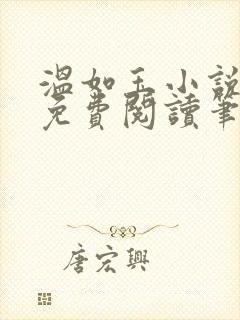 溫如玉小說
免費閱讀筆
唐宏興